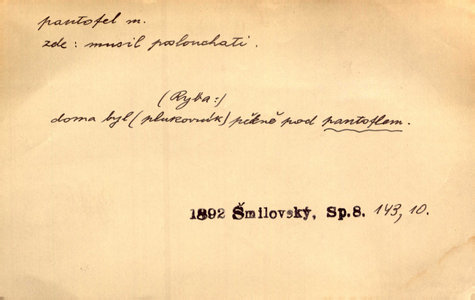 pantofel m.
zde: musil poslouchati.
(Ryba:)
doma byl (plukovník) pěkně pod pantoflem.
1892 Šmilovský, Sp.8. 143, 10.